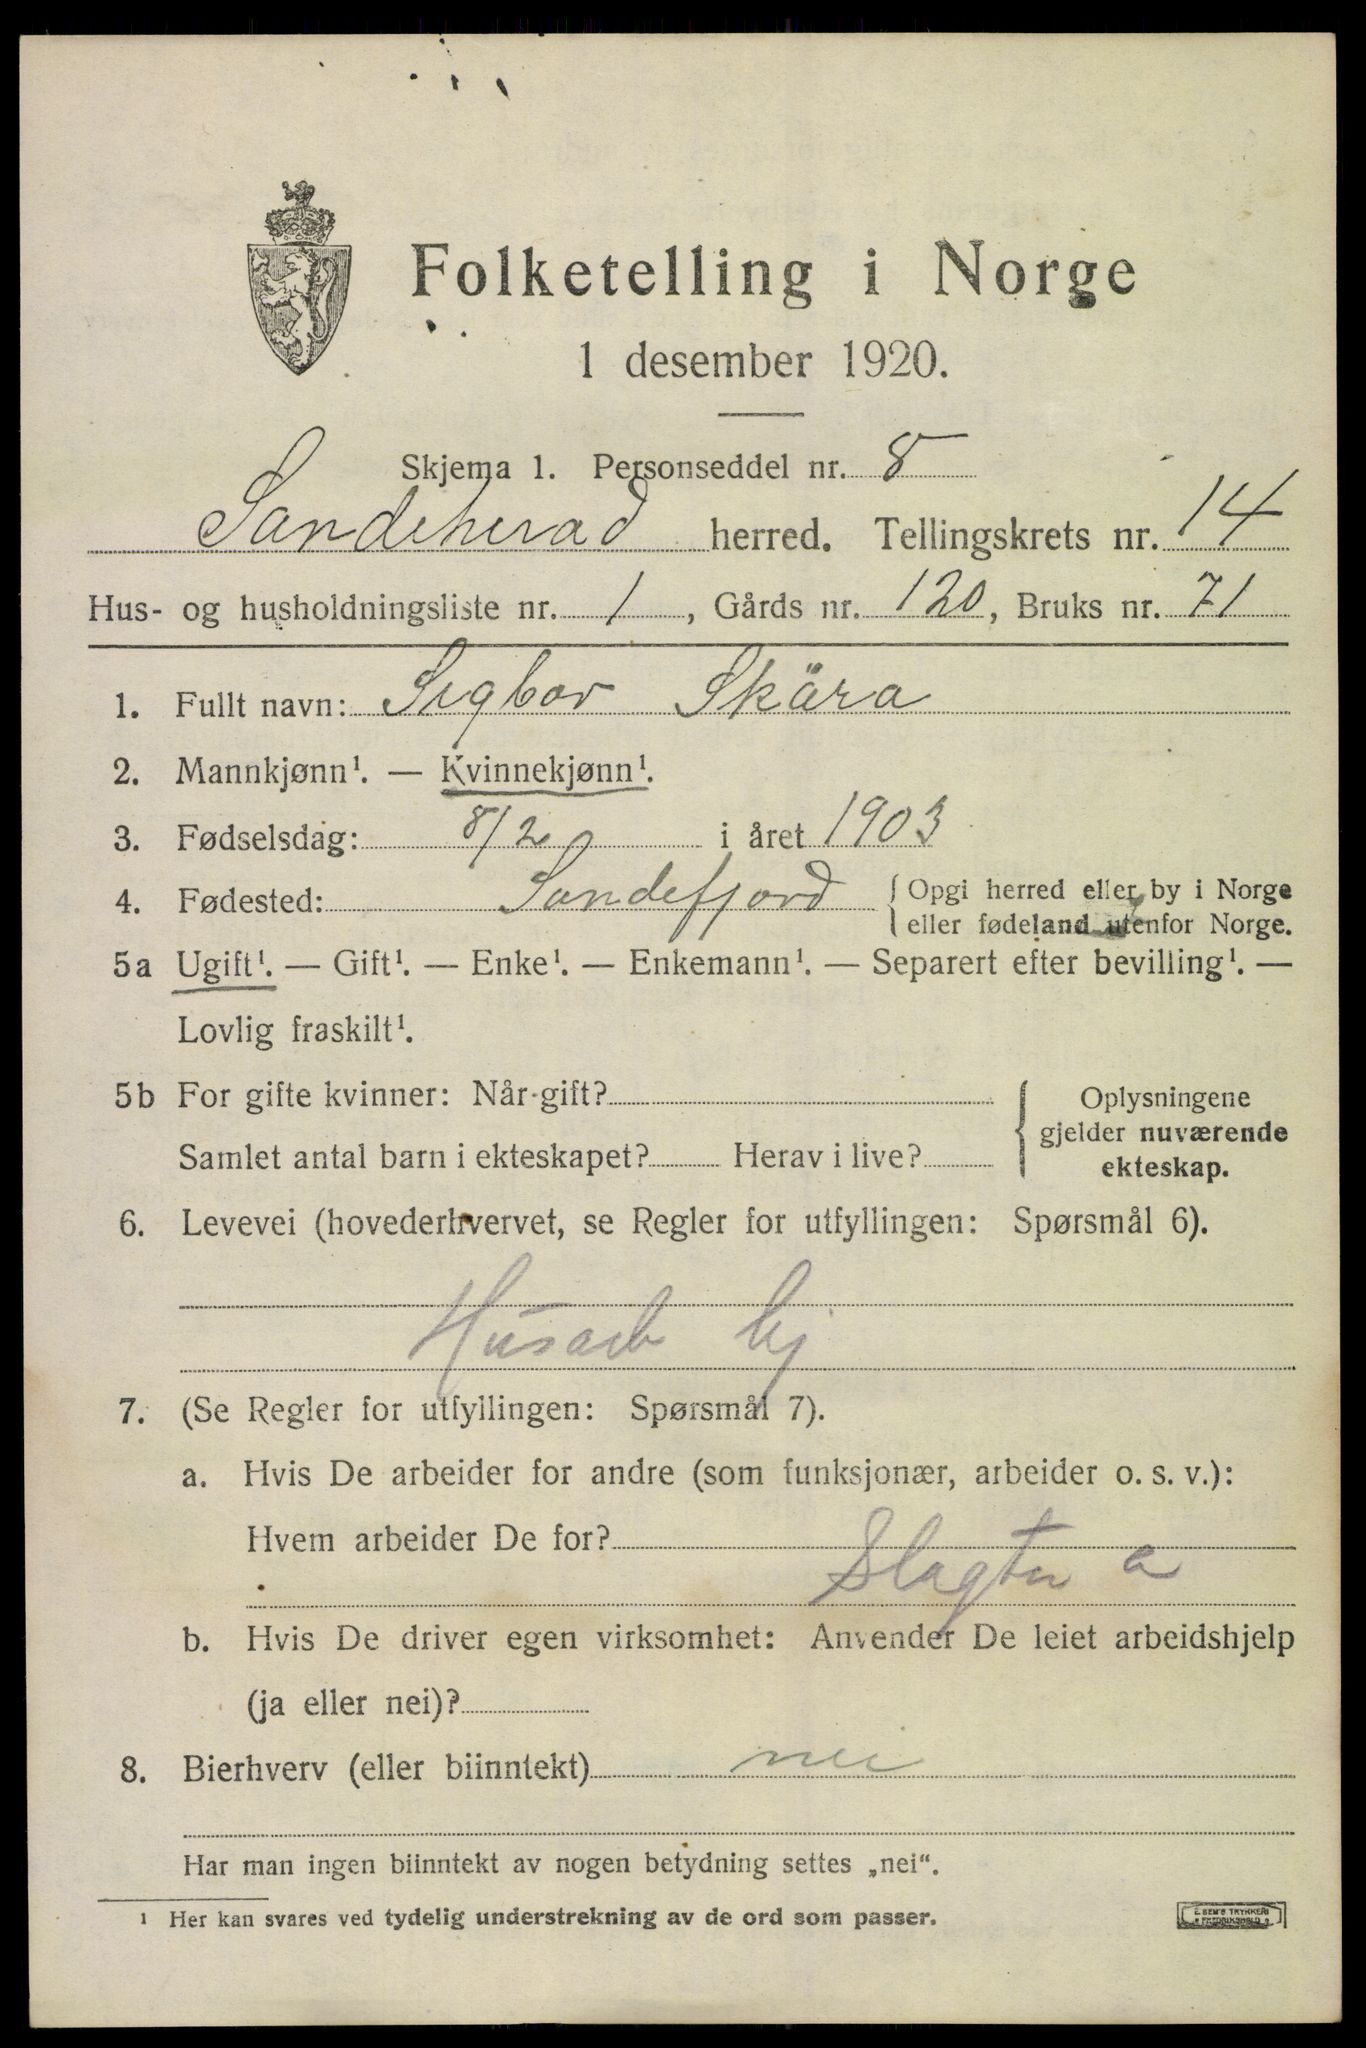 Folketelling i Norge
1 desember 1920.
Skjema 1. Personseddel nr. 8
Sandeherad herred. Tellingskrets nr. 14
Hus- og husholdningsliste nr. 1, Gårds nr. 120, Bruks nr. 71
1. Fullt navn: Sigbor Skära
2. Mannkjønn¹. — Kvinnekjønn¹.
3. Fødselsdag: 8/2 i året 1903
4. Fødested: Sandefjord { Opgi herred eller by i Norge
eller fødeland utenfor Norge.
5a Ugift¹. — Gift¹. — Enke¹. — Enkemann¹. — Separert efter bevilling¹. —
Lovlig fraskilt¹.
5b For gifte kvinner: Når gift?
Samlet antal barn i ekteskapet? Herav i live?
Oplysningene
gjelder nuværende
ekteskap.
6. Levevei (hovederhvervet, se Regler for utfyllingen: Spørsmål 6).
Husarb hj
7. (Se Regler for utfyllingen: Spørsmål 7).
a. Hvis De arbeider for andre (som funksjonær, arbeider o. s. v.):
Hvem arbeider De for?
Slagter a
b. Hvis De driver egen virksomhet: Anvender De leiet arbeidshjelp
(ja eller nei)?
8. Bierhverv (eller biinntekt) nei
Har man ingen biinntekt av nogen betydning settes „nei“.
¹ Her kan svares ved tydelig understrekning av de ord som passer.
E. SEM'S TRYKKERI
FREDRIKSHALD